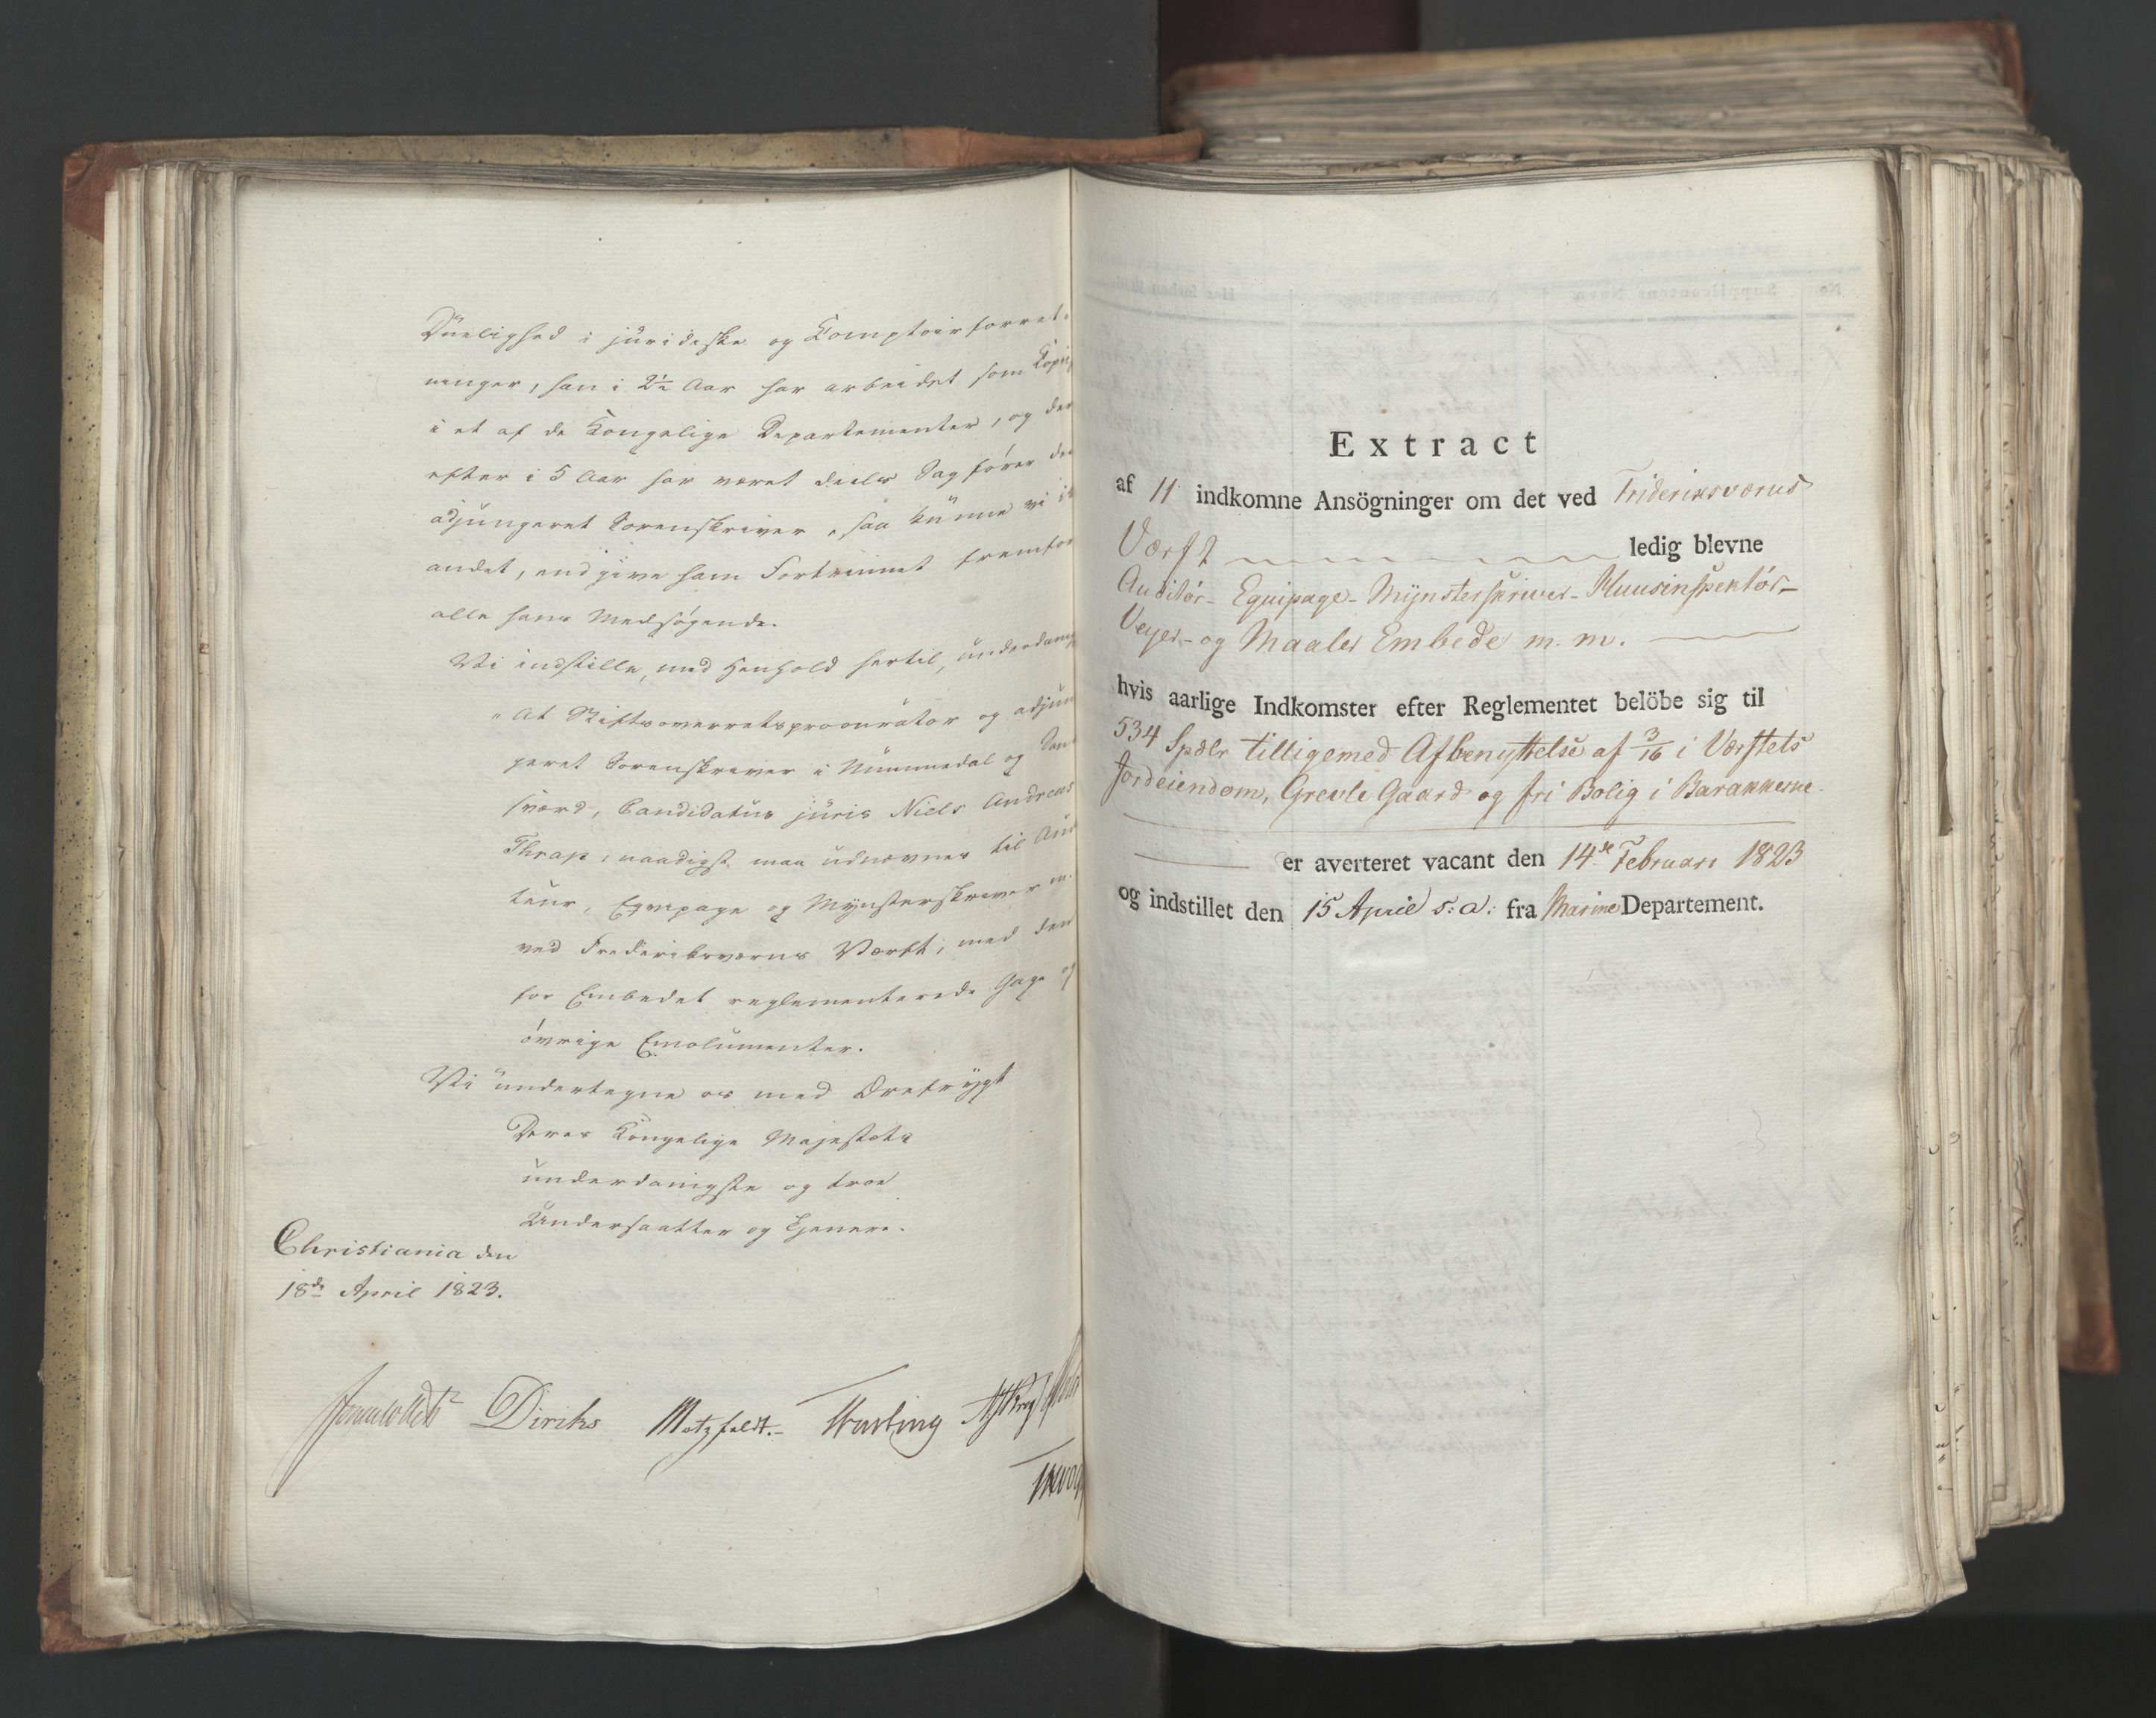 Duelighed i juridiske og Comptoirforret-
ninger, han i 2½ Aar har arbeidet som Kopi
i et af de Kongelige Departementer, og der
efter i 5 Aar har været deels Sagfører de
adjungeret Sorenskriver, saa kunne vi i
andet, end give ham Fortrinnet fremfor
alle hans Medsøgende.
Vi indstille, med Henhold hertil, underdan
"At Stiftsoverretsprocurator og adjun
geret Sorenskriver i Nummedal og San
sværd, Candidatus juris Niels Andreas
Thrap, naadigst maa udnævnes til Au
teur, Eqvipage og Mynsterskriver m.
ved Frederiksværns Værft, med den
for Embedet reglementerede Gage og
øvrige Emolumenter.
Vi undertegne os med Ærefrygt
Deres Kongelige Majestæts
underdanigste og troe
Undersaatter og Tjenere.
Christiania den
18de April 1823.
Diriks Motzfeldt.
Extract
af 11 indkomne Ansögninger om det ved Frideriksværns
Værft ledig blevne
Auditør- Equipage- Mynsterskriver- Huusinspektør-
Vejer- og Maaler Embede m. m.
hvis aarlige Indkomster efter Reglementet belöbe sig til
534 Spdlr tilligemed Afbenyttelse af 3/16 i Værftets
Jordeiendom, Grevle Gaard og fri Bolig i Barakkerne
er averteret vacant den 14de Februari 1823
og indstillet den 15 April s: a: fra Marine Departement.